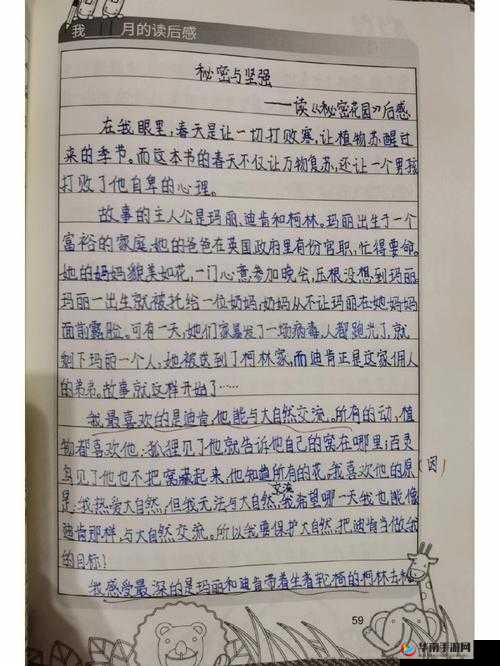 我 月的读后感
秘密与坚强
——读《秘密花园》后感
在我眼里,春天是让一切打败寒,让植物苏醒过
来的季节。而这本书的春天不仅让万物复苏,还让一个男孩
打败了他自卑的心理。
故事的主人公是玛丽、迪肯和柯林。玛丽出生于一个
富裕的家庭,她的爸爸在英国政府里有份官职,忙得要命。
她的妈妈貌美如花,一门心意参加晚会,压根没想到玛丽。
玛丽一出生就被托给一位奶妈,奶妈从不让玛丽在她妈妈
面前露脸。可有一天,她们家暴发了一场病毒,人都跑光了,就
剩下玛丽一个人,她被送到了柯林家,而迪肯正是这家佣人
的弟弟。故事就这样开始了……
我最喜欢的是迪肯,他能与大自然交流。所有的动,植
物都喜欢他:狐狸见了他就告诉他自己的窝在哪里;百灵
鸟见了他也不把窝藏起来,他知道所有的花。我喜欢他的原(因)
是:我热爱大自然,但我无法与大自然交流,我希望哪一天我也能像
迪肯那样,与大自然交流。所以我要保护大自然,把迪肯当做我
的目标!
我感受最深的是玛丽和迪肯带着坐着轮椅的柯林去秘
59
华南手游网